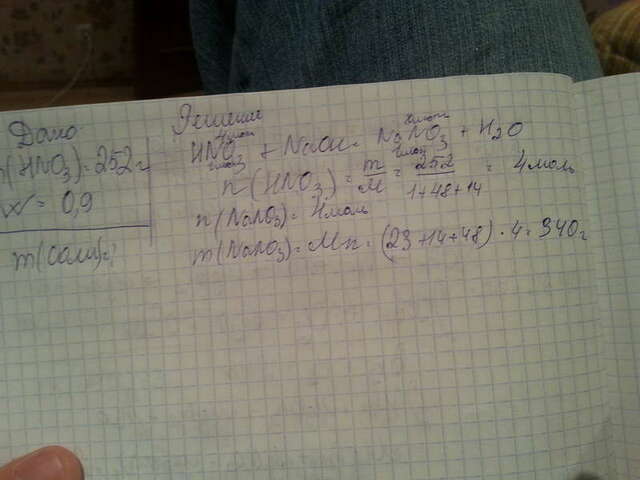 Дано
m(HNO3)=252г
W = 0,9
m(соли)=?
Решение
4моль xмоль
HNO3 + NaOH = NaNO3 + H2O
1моль 1моль
n(HNO3) = m/M = 252/1+48+14 = 4моль
n(NaNO3) = 4моль
m(NaNO3) = Mn = (23+14+48)·4 = 340г